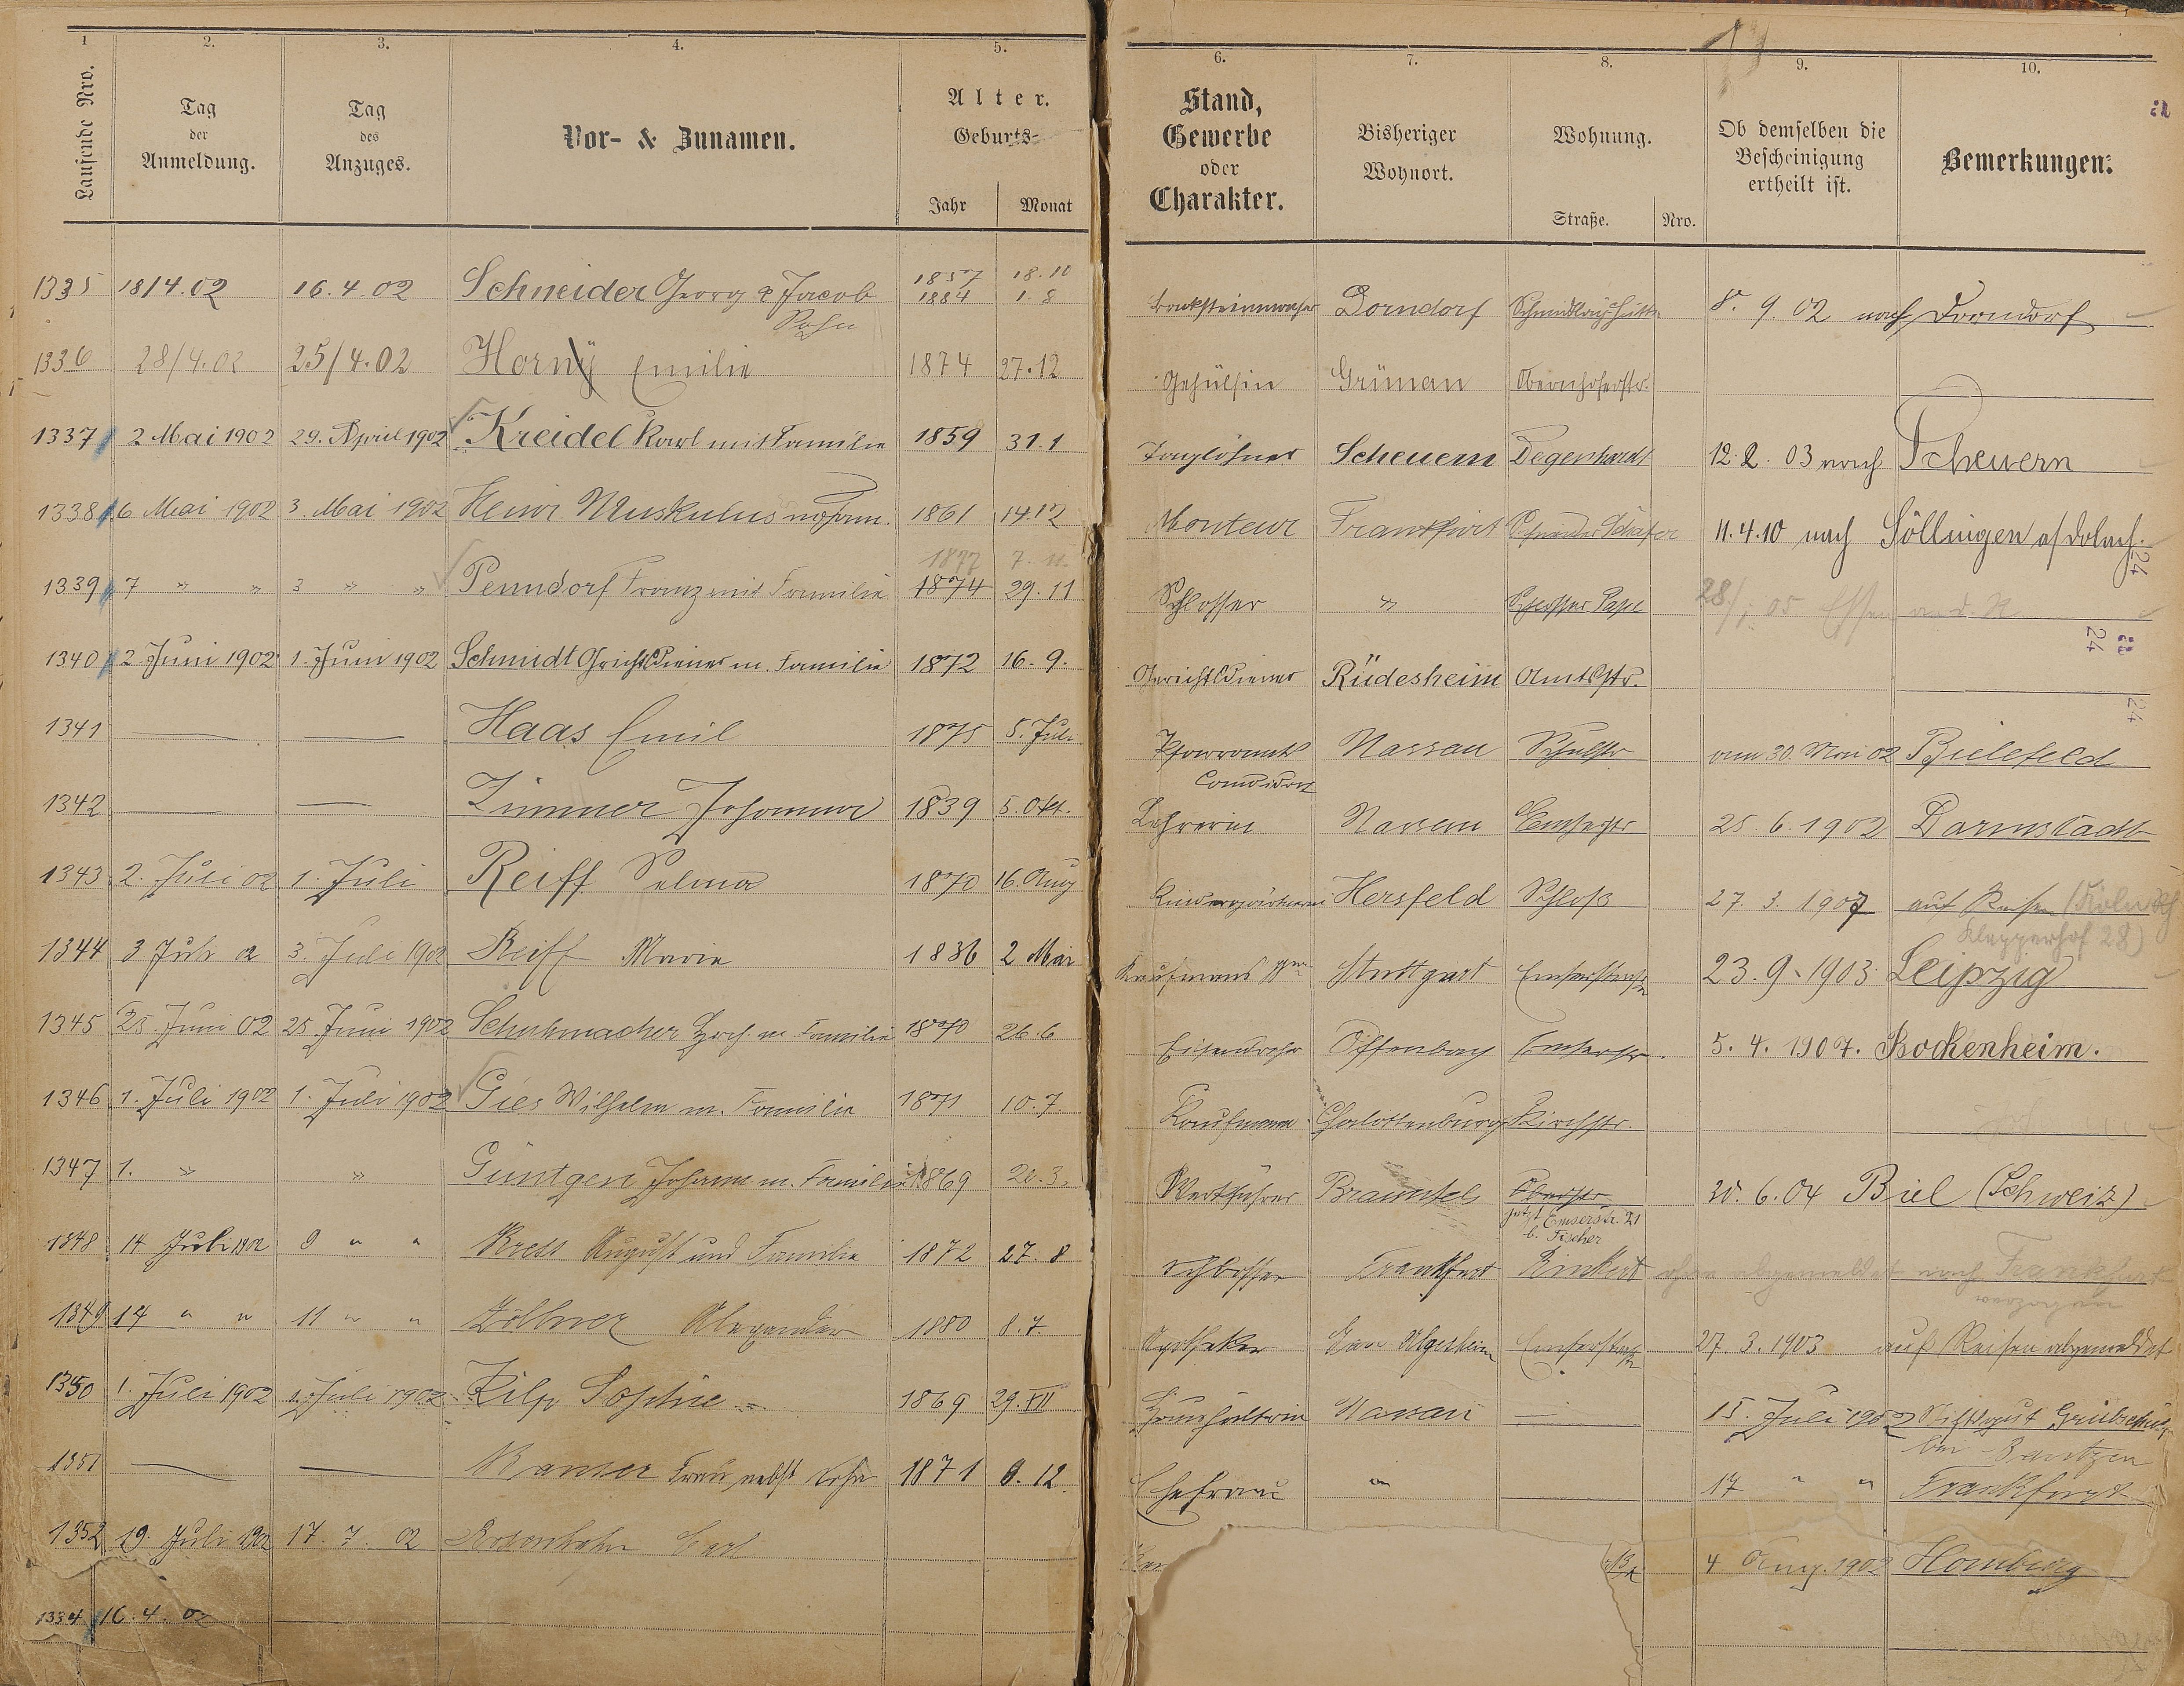 1 2. 3. 4. 5. 6. 7. 8. 9. 10.
Laufende Nro. Tag der Anmeldung. Tag des Anzuges. Vor- & Zunamen. Alter. Geburts- Jahr Monat Stand, Gewerbe oder Charakter. Bisheriger Wohnort. Wohnung. Straße. Nro. Ob demselben die Bescheinigung ertheilt ist. Bemerkungen.
1857 18.10
1335 18/4.02 16.4.02 Schneider Georg & Jacob 1884 1.8 Dorndorf 8. 9. 02 nach Dorndorf
Sohn
1336 28/4.02 25/4.02 Horny Emilie 1874 27.12 Gehülfin Grünau Obernhoferstr.
1337 2 Mai 1902 29. April 1902 Kreidel Karl mit Familie 1859 31.1 Taglöhner Scheuern Degenhardt 12. 2. 03 nach Scheuern
1338 6 Mai 1902 3. Mai 1902 Heinr Muskulus 1861 14.12 Monteur Frankfurt Schäfer 11.4.10 nach Söllingen
1877 7. 11.
1339 7 " " 3 " " Penndorf Franz mit Familie 1874 29.11 Schlosser " Schlosser Pape 28/1. 05 Essen a. d. R
1340 2 Juni 1902 1. Juni 1902 Schmidt Gerichtsdiener m. Familie 1872 16.9. Gerichtsdiener Rüdesheim Amtsstr.
1341 — — Haas Emil 1875 5. Juli Pfarramts Nassau Schulstr vom 30. Mai 02 Bielefeld
Candidat
1342 — — Zimmer Johanna 1839 5. Okt. Lehrerin Nassau Emserstr 25 6. 1902 Darmstadt
1343 2. Juli 02 1. Juli Reiff Selma 1870 16. Aug Kindergärtnerin Hersfeld Schloß 27. 3. 1907 auf Reisen (Köln
Klapperhof 28)
1344 3 Juli 02 3. Juli 1902 Reiff Marie 1836 2 Mai Kaufmanns Stuttgart Emserstraße 23.9.1903 Leipzig
1345 25 Juni 02 25 Juni 1902 Schuhmacher m Familie 1870 26.6 Eisendreher Offenbach Emserstr. 5. 4. 1907. Bockenheim.
1346 1. Juli 1902 1. Juli 1902 Gies Wilhelm m. Familie 1871 10.7. Kaufmann Charlottenburg Kirchstr.
1347 1. " " Güntgen Johann m. Familie 1869 20.3. Werkführer Braunfels Oberstr 20. 6. 04 Biel (Schweiz)
jetzt Emserstr. 21
b. Fischer
1348 14 Juli 1902 9 " " Kress August und Familie 1872 27. 8 Schlosser Frankfurt Rinkert ohne abgemeldet nach Frankfurt
verzogen
1349 14 " " 11 " " Zöllner Alexander 1880 8.7. Apotheker Gau Algesheim Emserstraße 27. 3. 1903 auf Reisen abgemeldet
1350 1. Juli 1902 1. Juli 1902 Kilp Sophie 1869 29.XII Haushälterin Nassau — 15. Juli 1902 Stiftsgut
bei Bautzen
1351 — — Frau nebst Sohn 1871 9. 12. Ehefrau " — 17 " " Frankfurt
1352 19. Juli 1902 17. 7. 02 Rosenhahn Carl 4 Aug. 1902 Homberg
1334 16.4.02